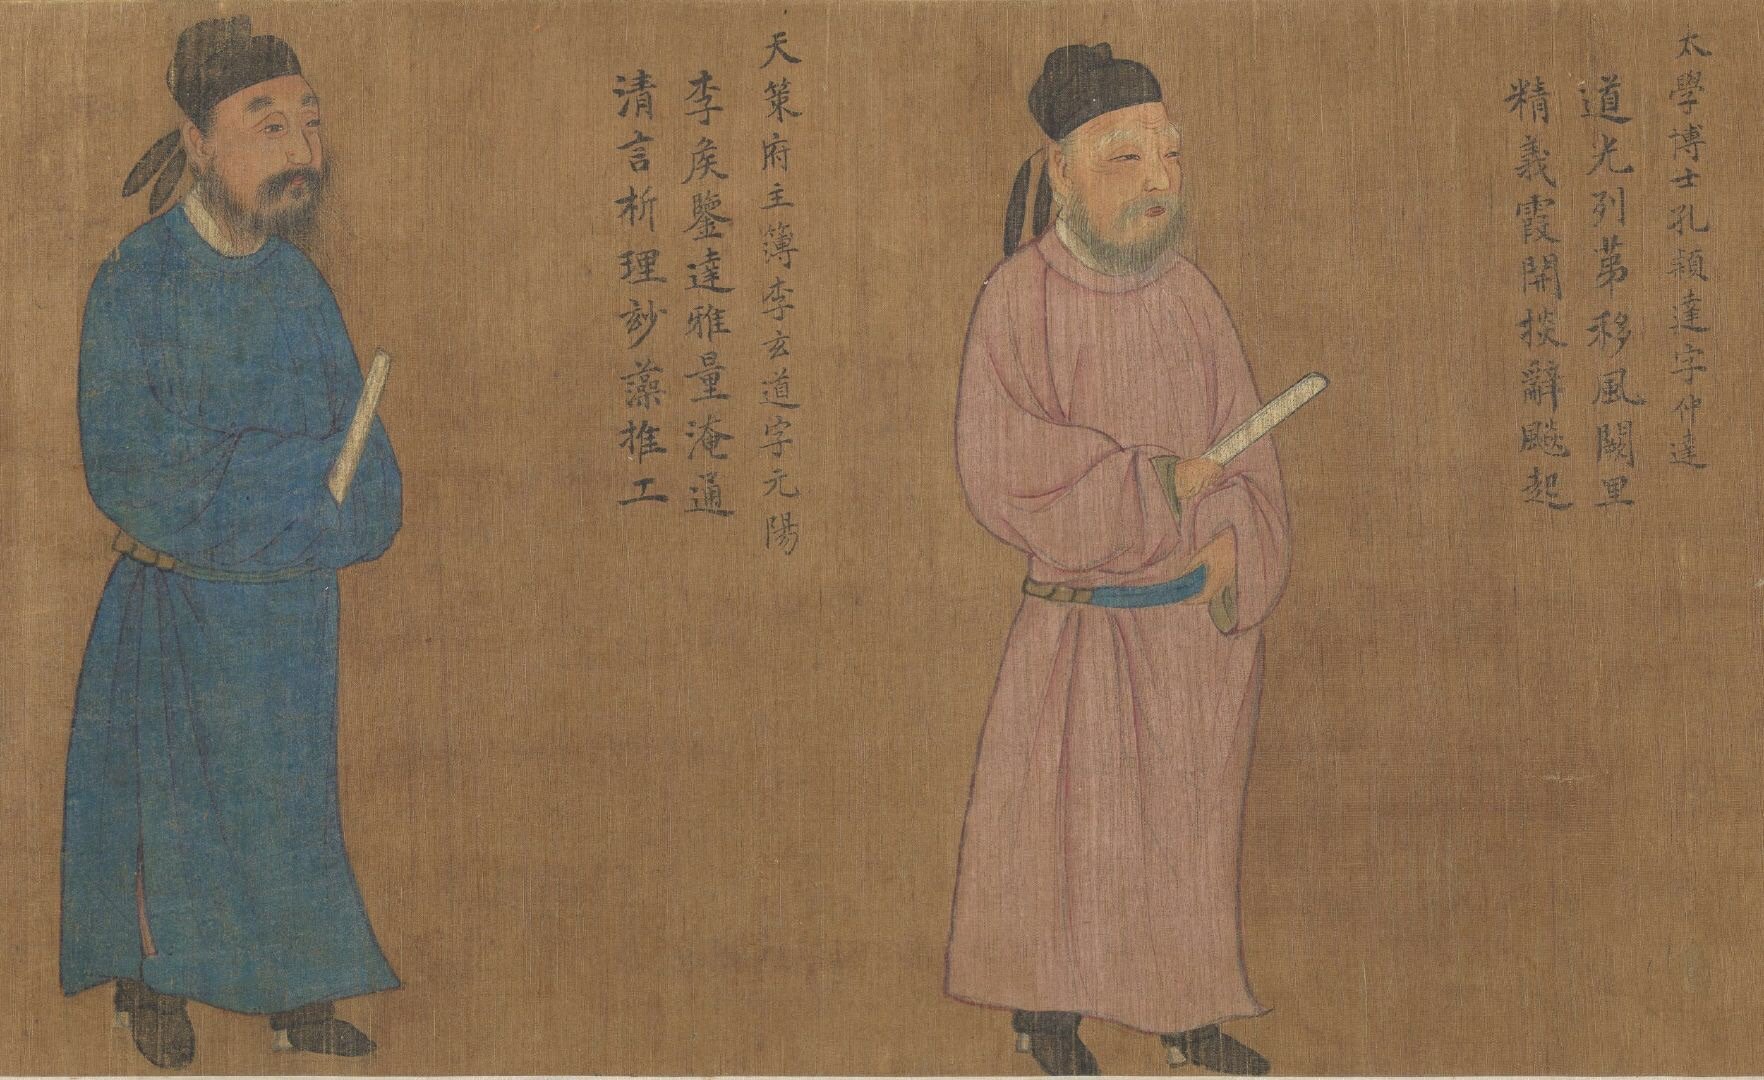 太學博士孔穎達字仲達
道光列苐移風闕里
精義霞開掞辭飈起
天策府主簿李玄道字元陽
李矦鑒達雅量淹通
清言析理妙藻推工